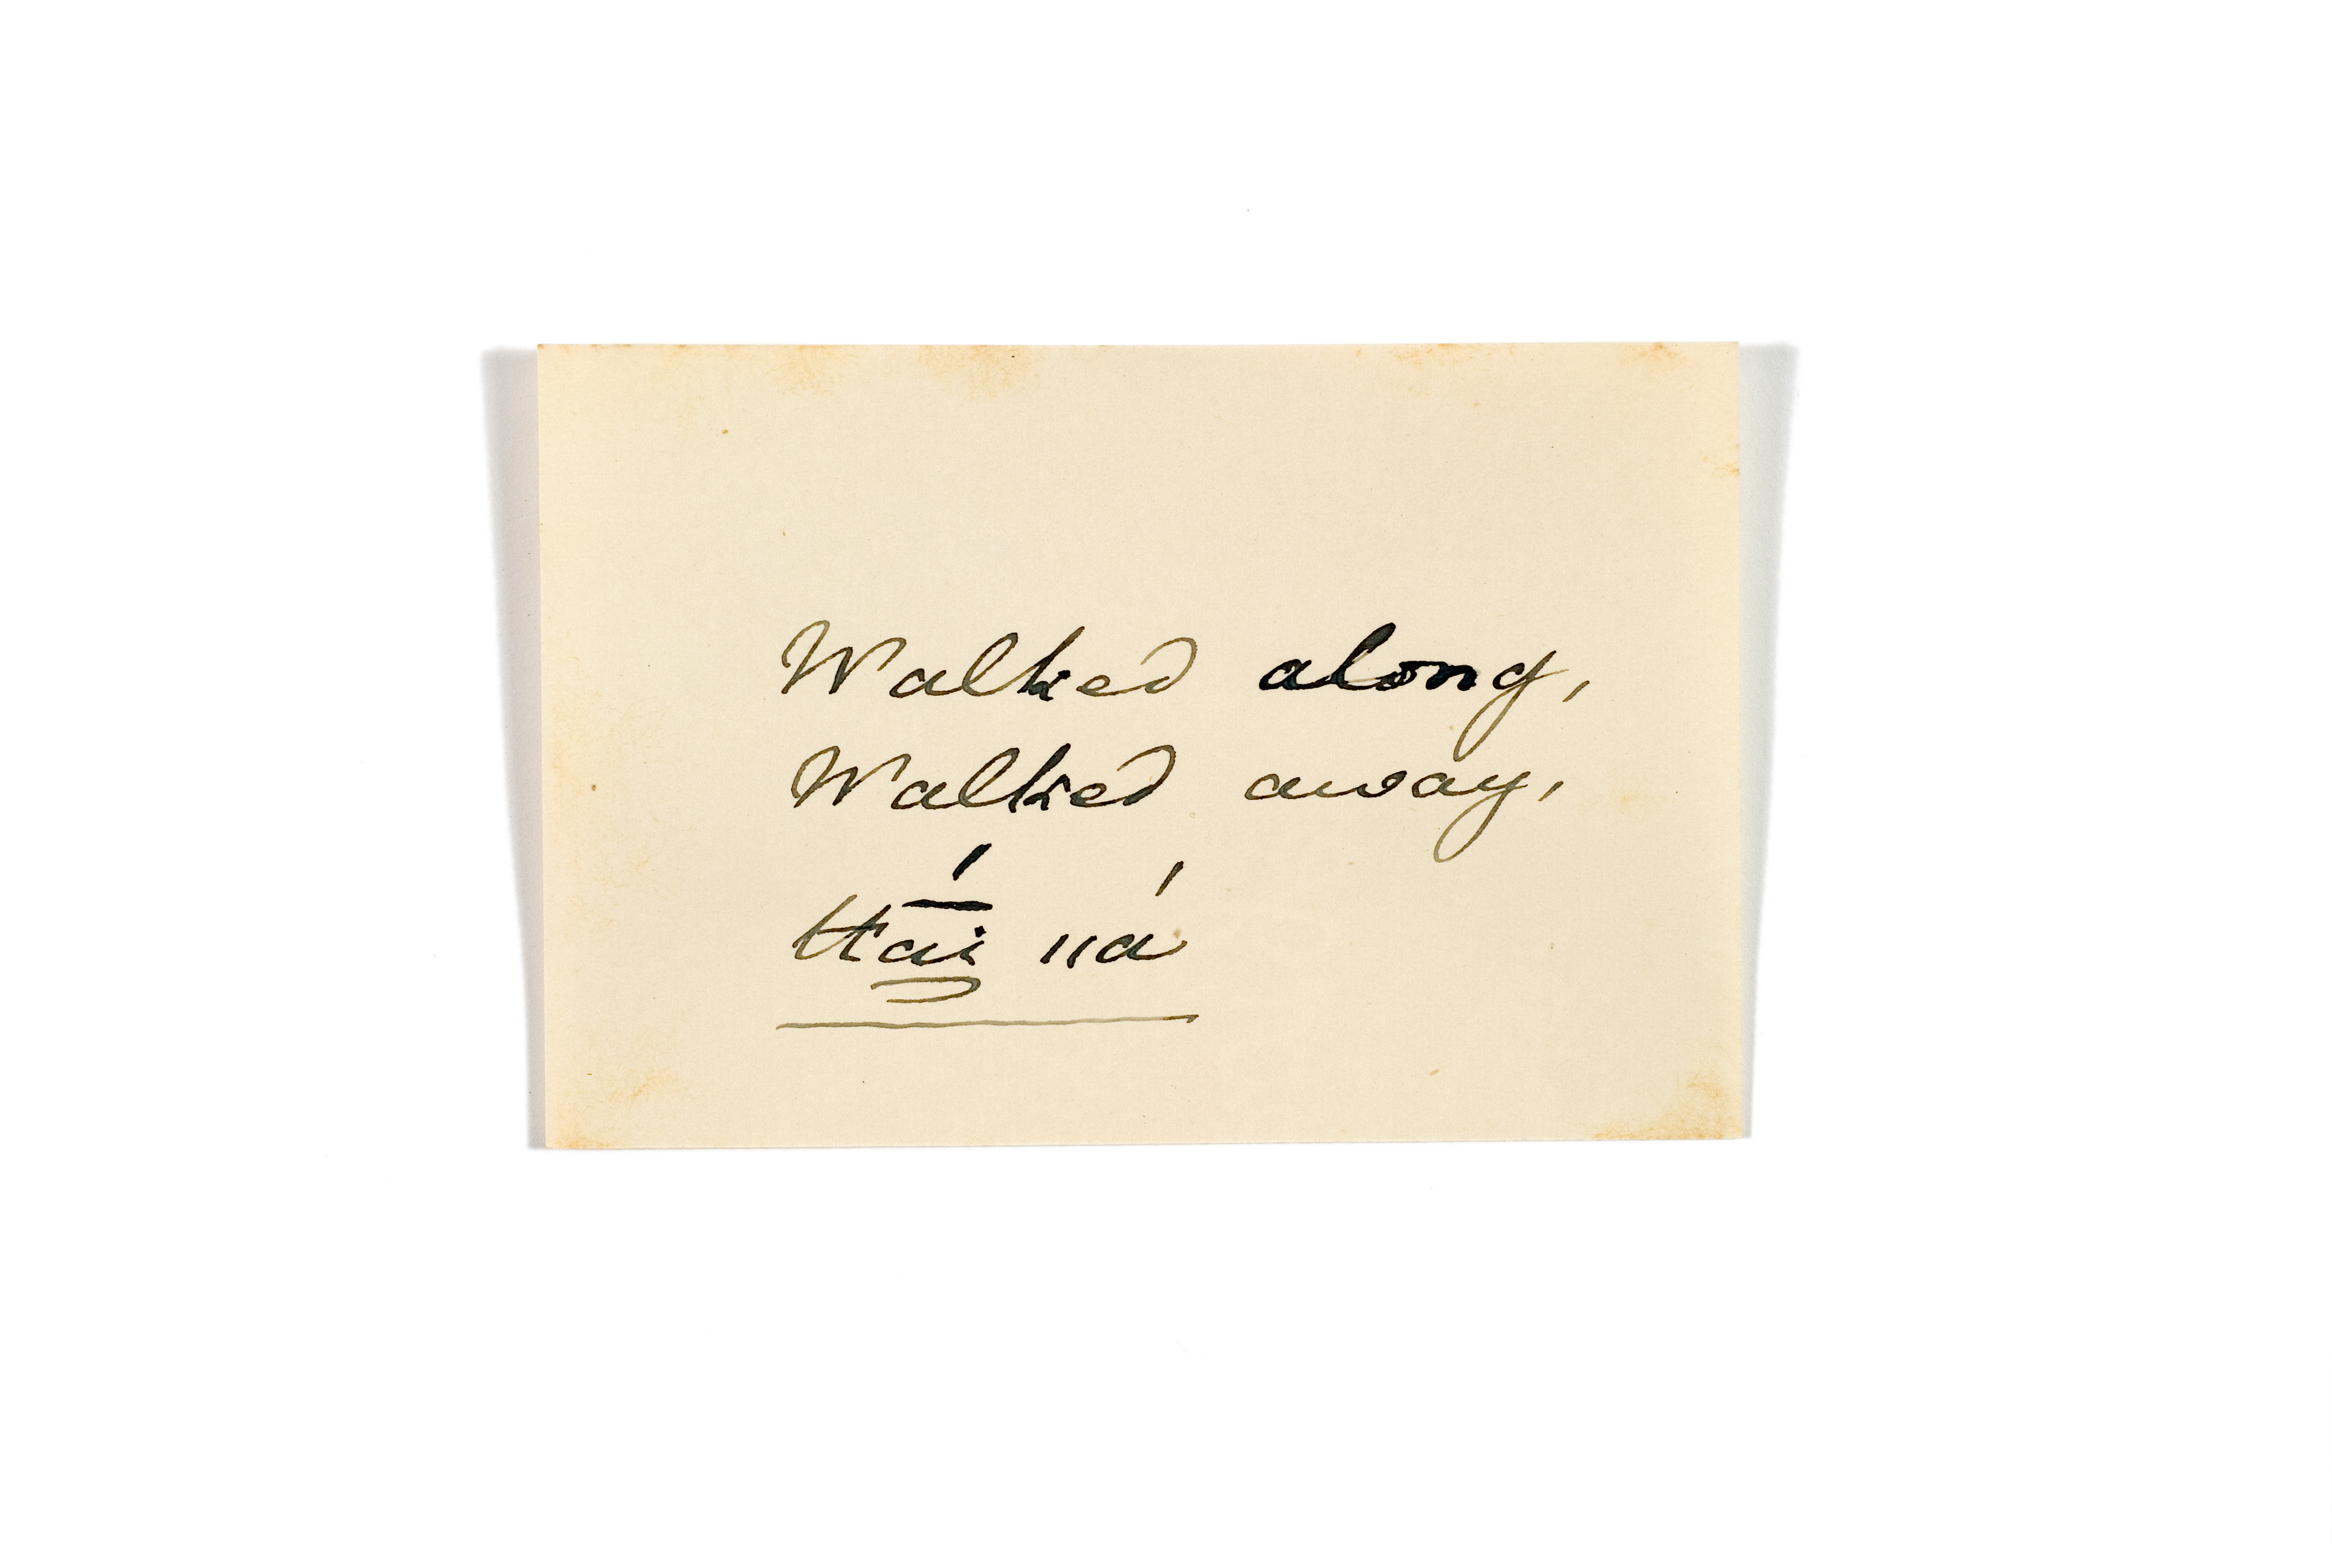 Walked along,
Walked away,